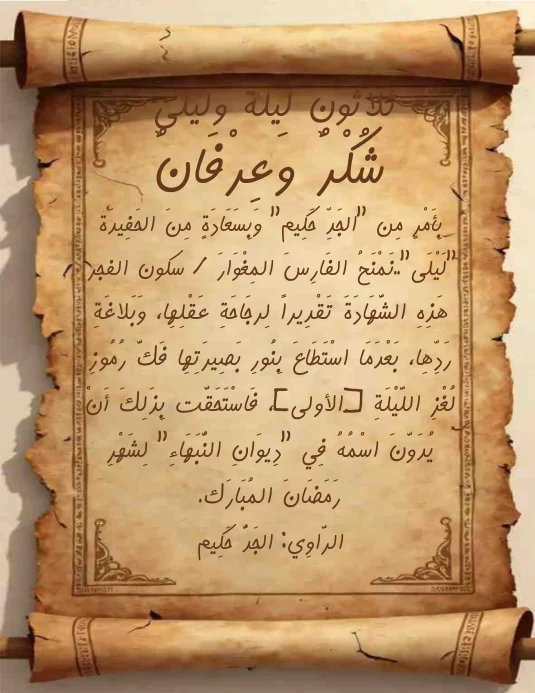 ثلاثون ليلة وليلى
شُكْرٌ وَعِرْفَانٌ
بِأَمْرٍ مِن "الجَدِّ حَكِيم" وَبِسَعَادَةٍ مِنَ الحَفِيدَةِ
"لَيْلَى"..نَمْنَحُ الفَارِسَ المِغْوَارَ / سكون الفجر
هَذِهِ الشَّهَادَةَ تَقْدِيراً لِرَجَاحَةِ عَقْلِهِا، وَبَلاغَةِ
رَدِّهِا، بَعْدَمَا اسْتَطَاعَ بِنُورِ بَصِيرَتِهِا فَكّ رُمُوزِ
لُغْزِ اللّيْلَةِ [الأولى]، فَاسْتَحَقّت بِذَلِكَ أَنْ
يُدَوّنَ اسْمُهُ فِي "دِيوَانِ النُّبَهَاءِ" لِشَهْرِ
رَمَضَانَ المُبَارَك.
الرّاوِي: الجَدّ حَكِيم